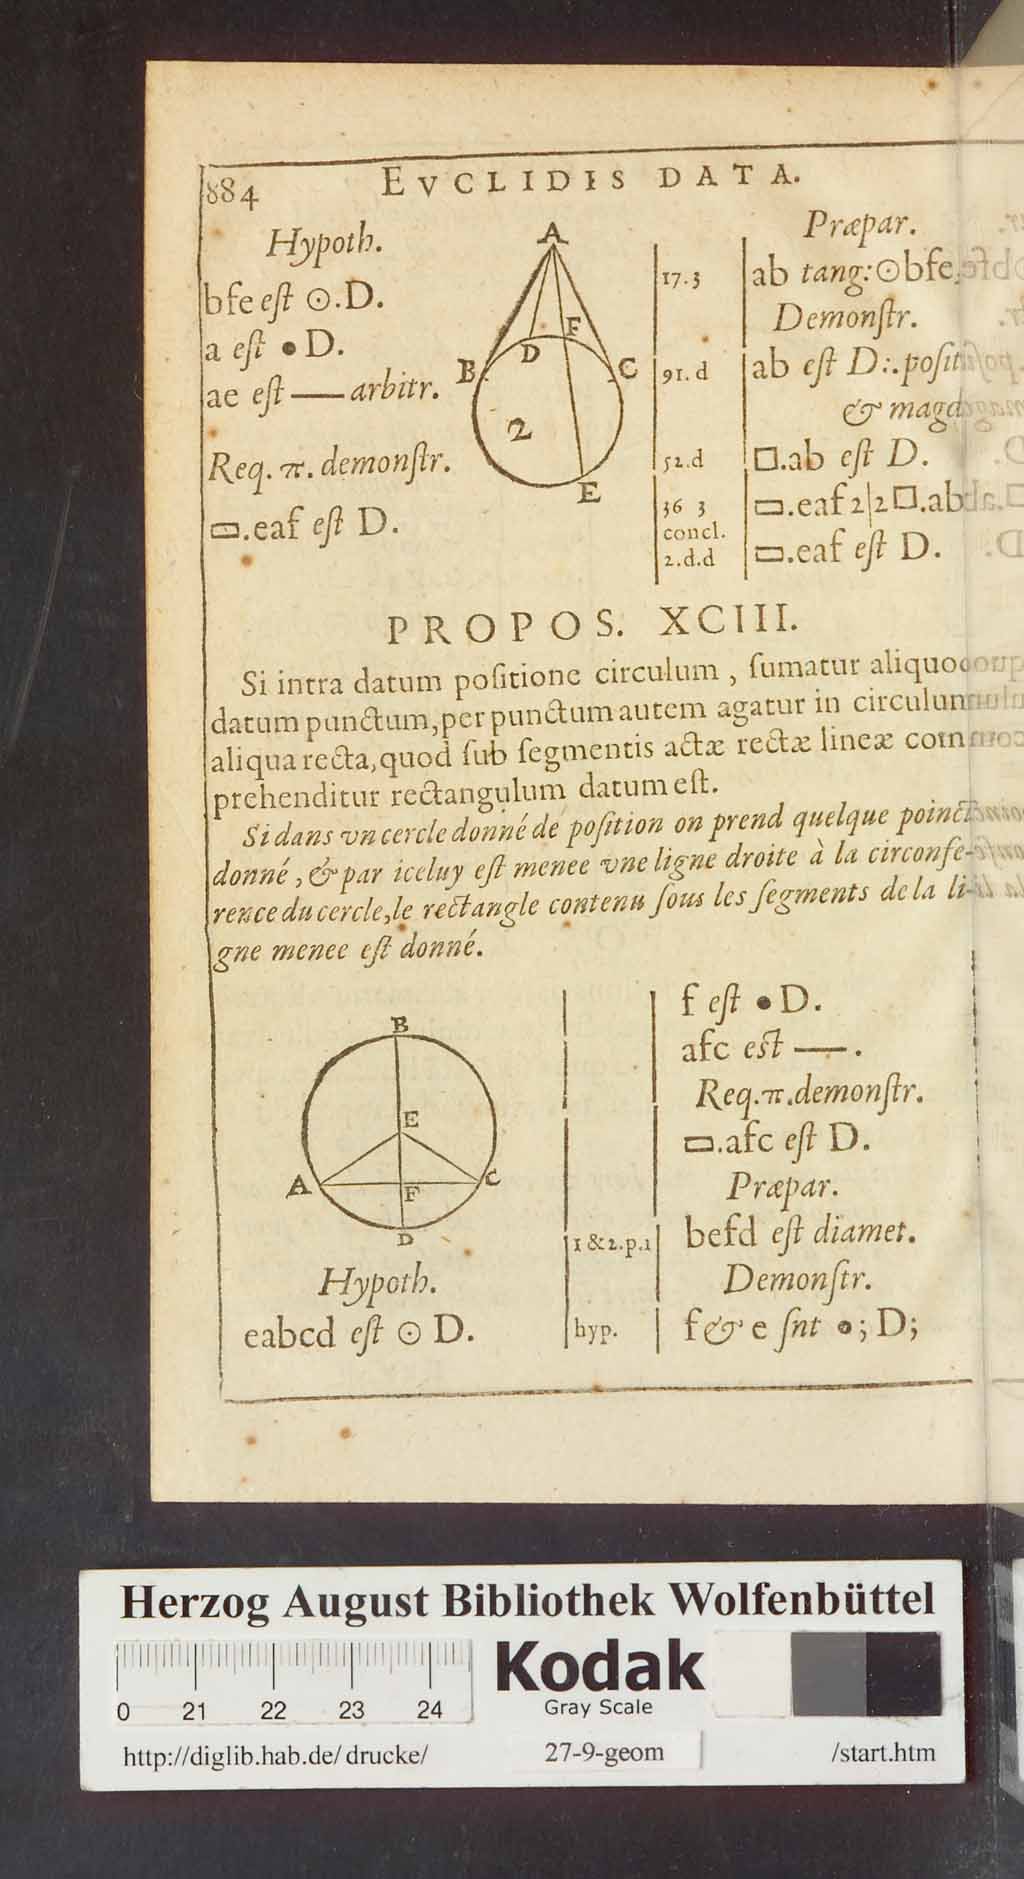 884
EVCLIDIS DATA.
Hypoth.
bfe eſt ⊙.D.
a eſt •D.
ae eſt — arbitr.
Req. π. demonſtr.
▭.eaf eſt D.
A
B
D
F
C
2
E
17.3
91.d
52.d
36 3
concl.
2.d.d
Præpar.
ab tang: ⊙bfe.
Demonſtr.
ab eſt D:. poſit
& magd
□.ab eſt D.
▭.eaf 2|2 □.ab
▭.eaf eſt D.
PROPOS. XCIII.
Si intra datum poſitione circulum, ſumatur aliquod
datum punctum, per punctum autem agatur in circulum
aliqua recta, quod ſub ſegmentis actæ rectæ lineæ com
prehenditur rectangulum datum eſt.
Si dans vn cercle donné de poſition on prend quelque poinct
donné, & par iceluy eſt menee vne ligne droite à la circonfe-
rence du cercle, le rectangle contenu ſous les ſegments de la li-
gne menee eſt donné.
B
E
A
F
C
D
Hypoth.
eabcd eſt ⊙ D.
f eſt •D.
afc eſt —.
Req. π. demonſtr.
▭.afc eſt D.
Præpar.
1 & 2.p.1
befd eſt diamet.
Demonſtr.
hyp.
f & e ſnt •; D;
Herzog August Bibliothek Wolfenbüttel
0 21 22 23 24
Kodak
Gray Scale
http://diglib.hab.de/drucke/
27-9-geom
/start.htm